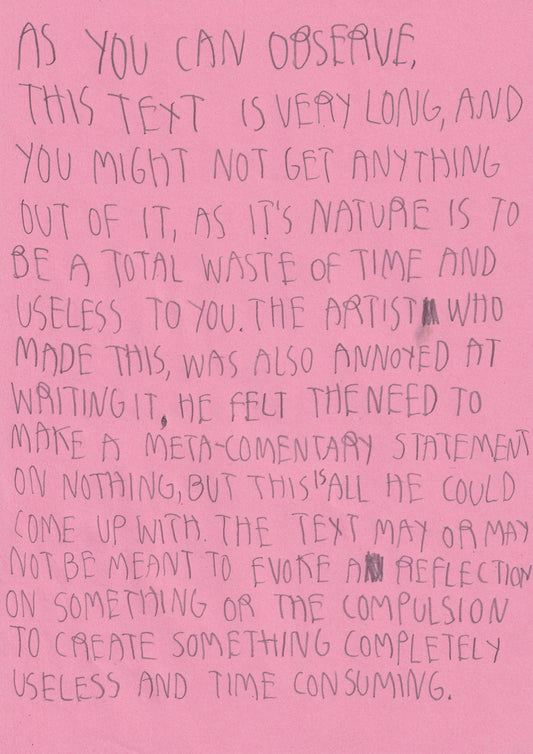 AS YOU CAN OBSERVE,
THIS TEXT IS VERY LONG, AND
YOU MIGHT NOT GET ANYTHING
OUT OF IT, AS IT'S NATURE IS TO
BE A TOTAL WASTE OF TIME AND
USELESS TO YOU. THE ARTIST WHO
MADE THIS, WAS ALSO ANNOYED AT
WRITING IT, HE FELT THE NEED TO
MAKE A META-COMENTARY STATEMENT
ON NOTHING, BUT THIS IS ALL HE COULD
COME UP WITH. THE TEXT MAY OR MAY
NOT BE MEANT TO EVOKE A REFLECTION
ON SOMETHING OR THE COMPULSION
TO CREATE SOMETHING COMPLETELY
USELESS AND TIME CONSUMING.